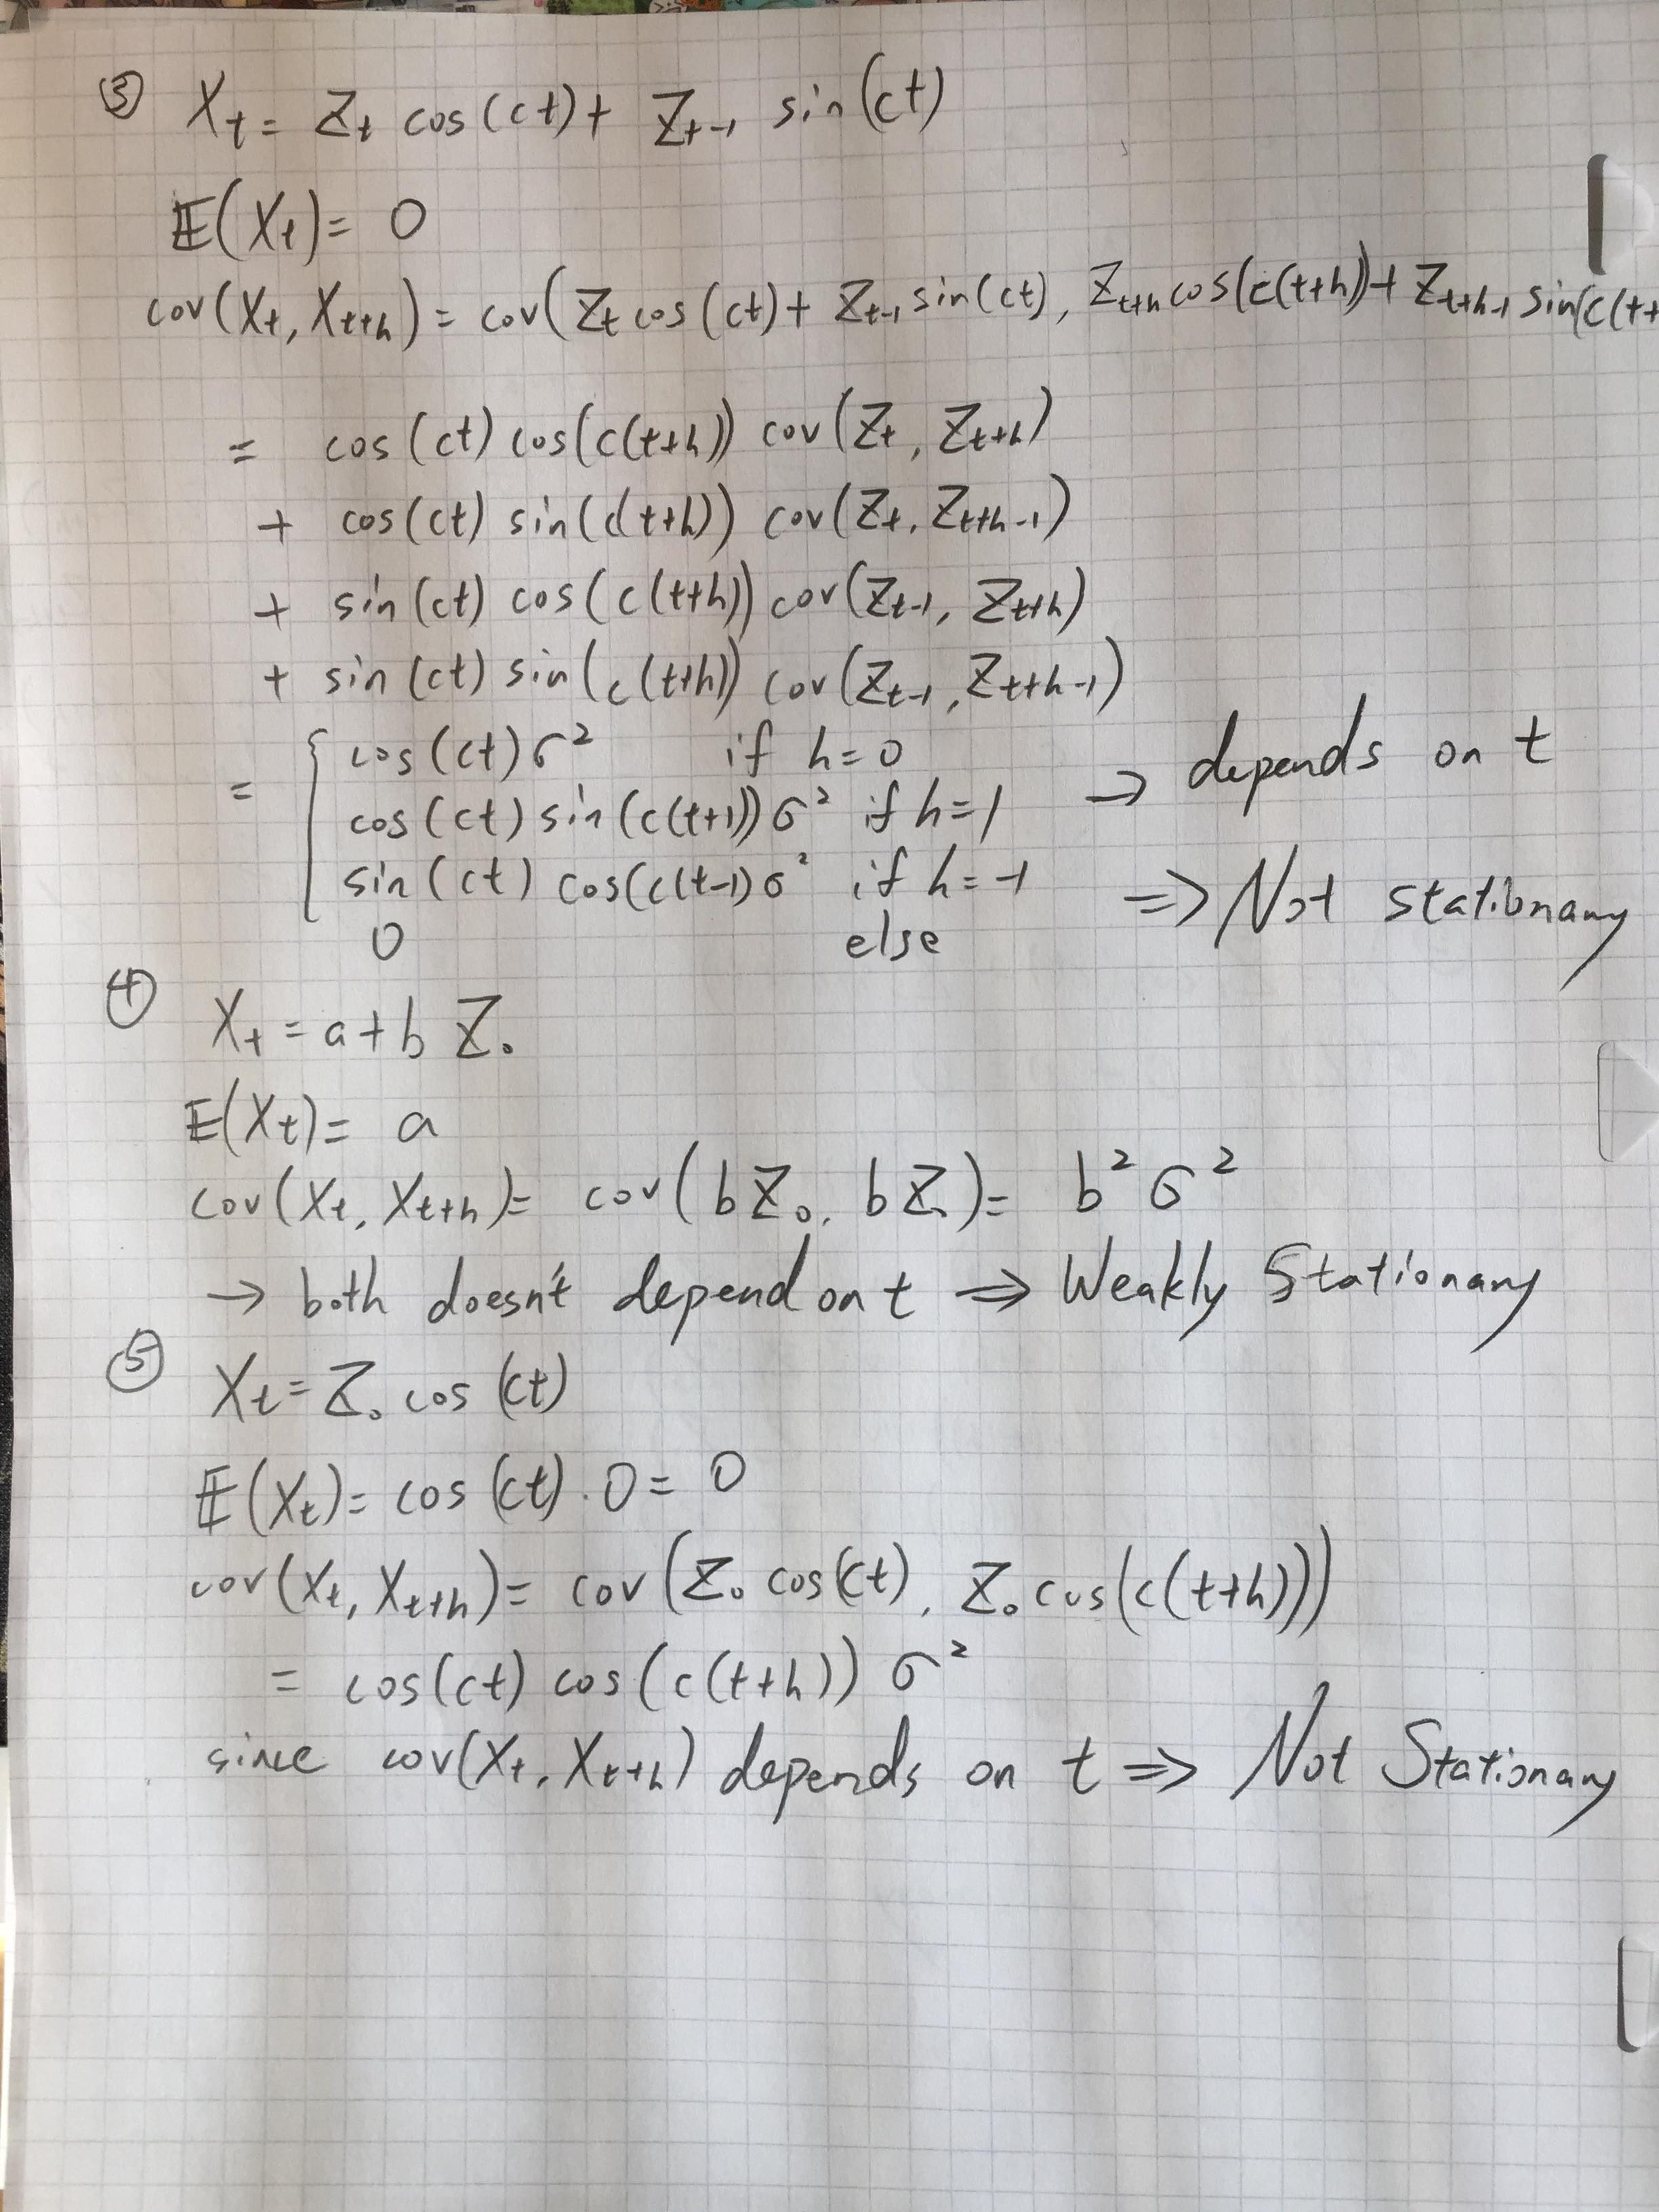 ③ X_t = Z_t cos(ct) + Z_{t-1} sin(ct)
𝔼(X_t) = 0
cov(X_t, X_{t+h}) = cov(Z_t cos(ct) + Z_{t-1} sin(ct), Z_{t+h} cos(c(t+h)) + Z_{t+h-1} sin(c(t+
= cos(ct) cos(c(t+h)) cov(Z_t, Z_{t+h})
+ cos(ct) sin(c(t+h)) cov(Z_t, Z_{t+h-1})
+ sin(ct) cos(c(t+h)) cov(Z_{t-1}, Z_{t+h})
+ sin(ct) sin(c(t+h)) cov(Z_{t-1}, Z_{t+h-1})
= { cos(ct) σ² if h=0
cos(ct) sin(c(t+1)) σ² if h=1 → depends on t
sin(ct) cos(c(t-1) σ² if h=-1 ⇒ Not stationary
0 else
④ X_t = a + b Z_0
𝔼(X_t) = a
cov(X_t, X_{t+h}) = cov(b Z_0, b Z_0) = b² σ²
→ both doesn't depend on t ⇒ Weakly Stationary
⑤ X_t = Z_0 cos(ct)
𝔼(X_t) = cos(ct) · 0 = 0
cov(X_t, X_{t+h}) = cov(Z_0 cos(ct), Z_0 cos(c(t+h)))
= cos(ct) cos(c(t+h)) σ²
since cov(X_t, X_{t+h}) depends on t ⇒ Not Stationary